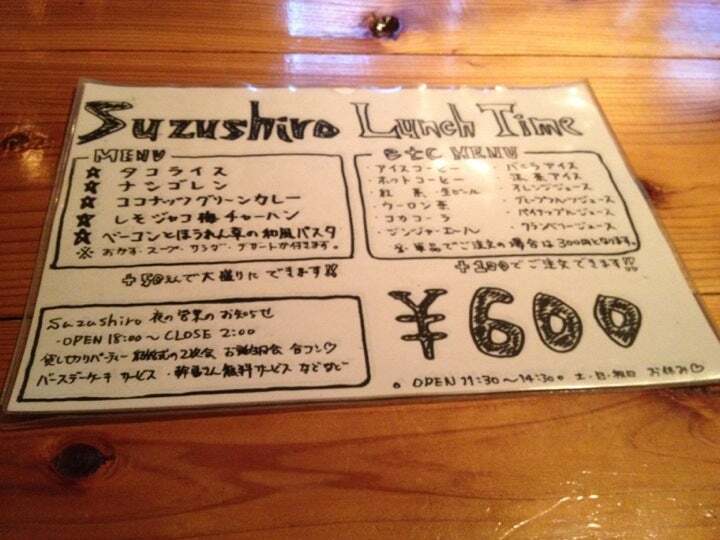 Suzushiro Lunch Time
MENU
☆ タコライス
☆ ナシゴレン
☆ ココナッツグリーンカレー
☆ レモジャコ梅チャーハン
☆ ベーコンとほうれん草の和風パスタ
※ おかず・スープ・サラダ・デザートが付きます。
+50えんで大盛りにできます!!
etc MENU
・アイスコーヒー
・ホットコーヒー
・紅茶・生ビール
・ウーロン茶
・コカコーラ
・ジンジャーエール
・バニラアイス
・抹茶アイス
・オレンジジュース
・グレープフルーツジュース
・パイナップルジュース
・クランベリージュース
※単品でご注文の場合は300円となります。
+100でご注文できます!!
¥600
Suzushiro 夜の営業のお知らせ
・OPEN 18:00~CLOSE 2:00
貸し切りパーティー 結婚式の2次会 お誕生日会 合コン♡
バースデーケーキサービス・幹事さん無料サービスなどなど
。OPEN 11:30~14:30。土・日・祝日 お休み♡